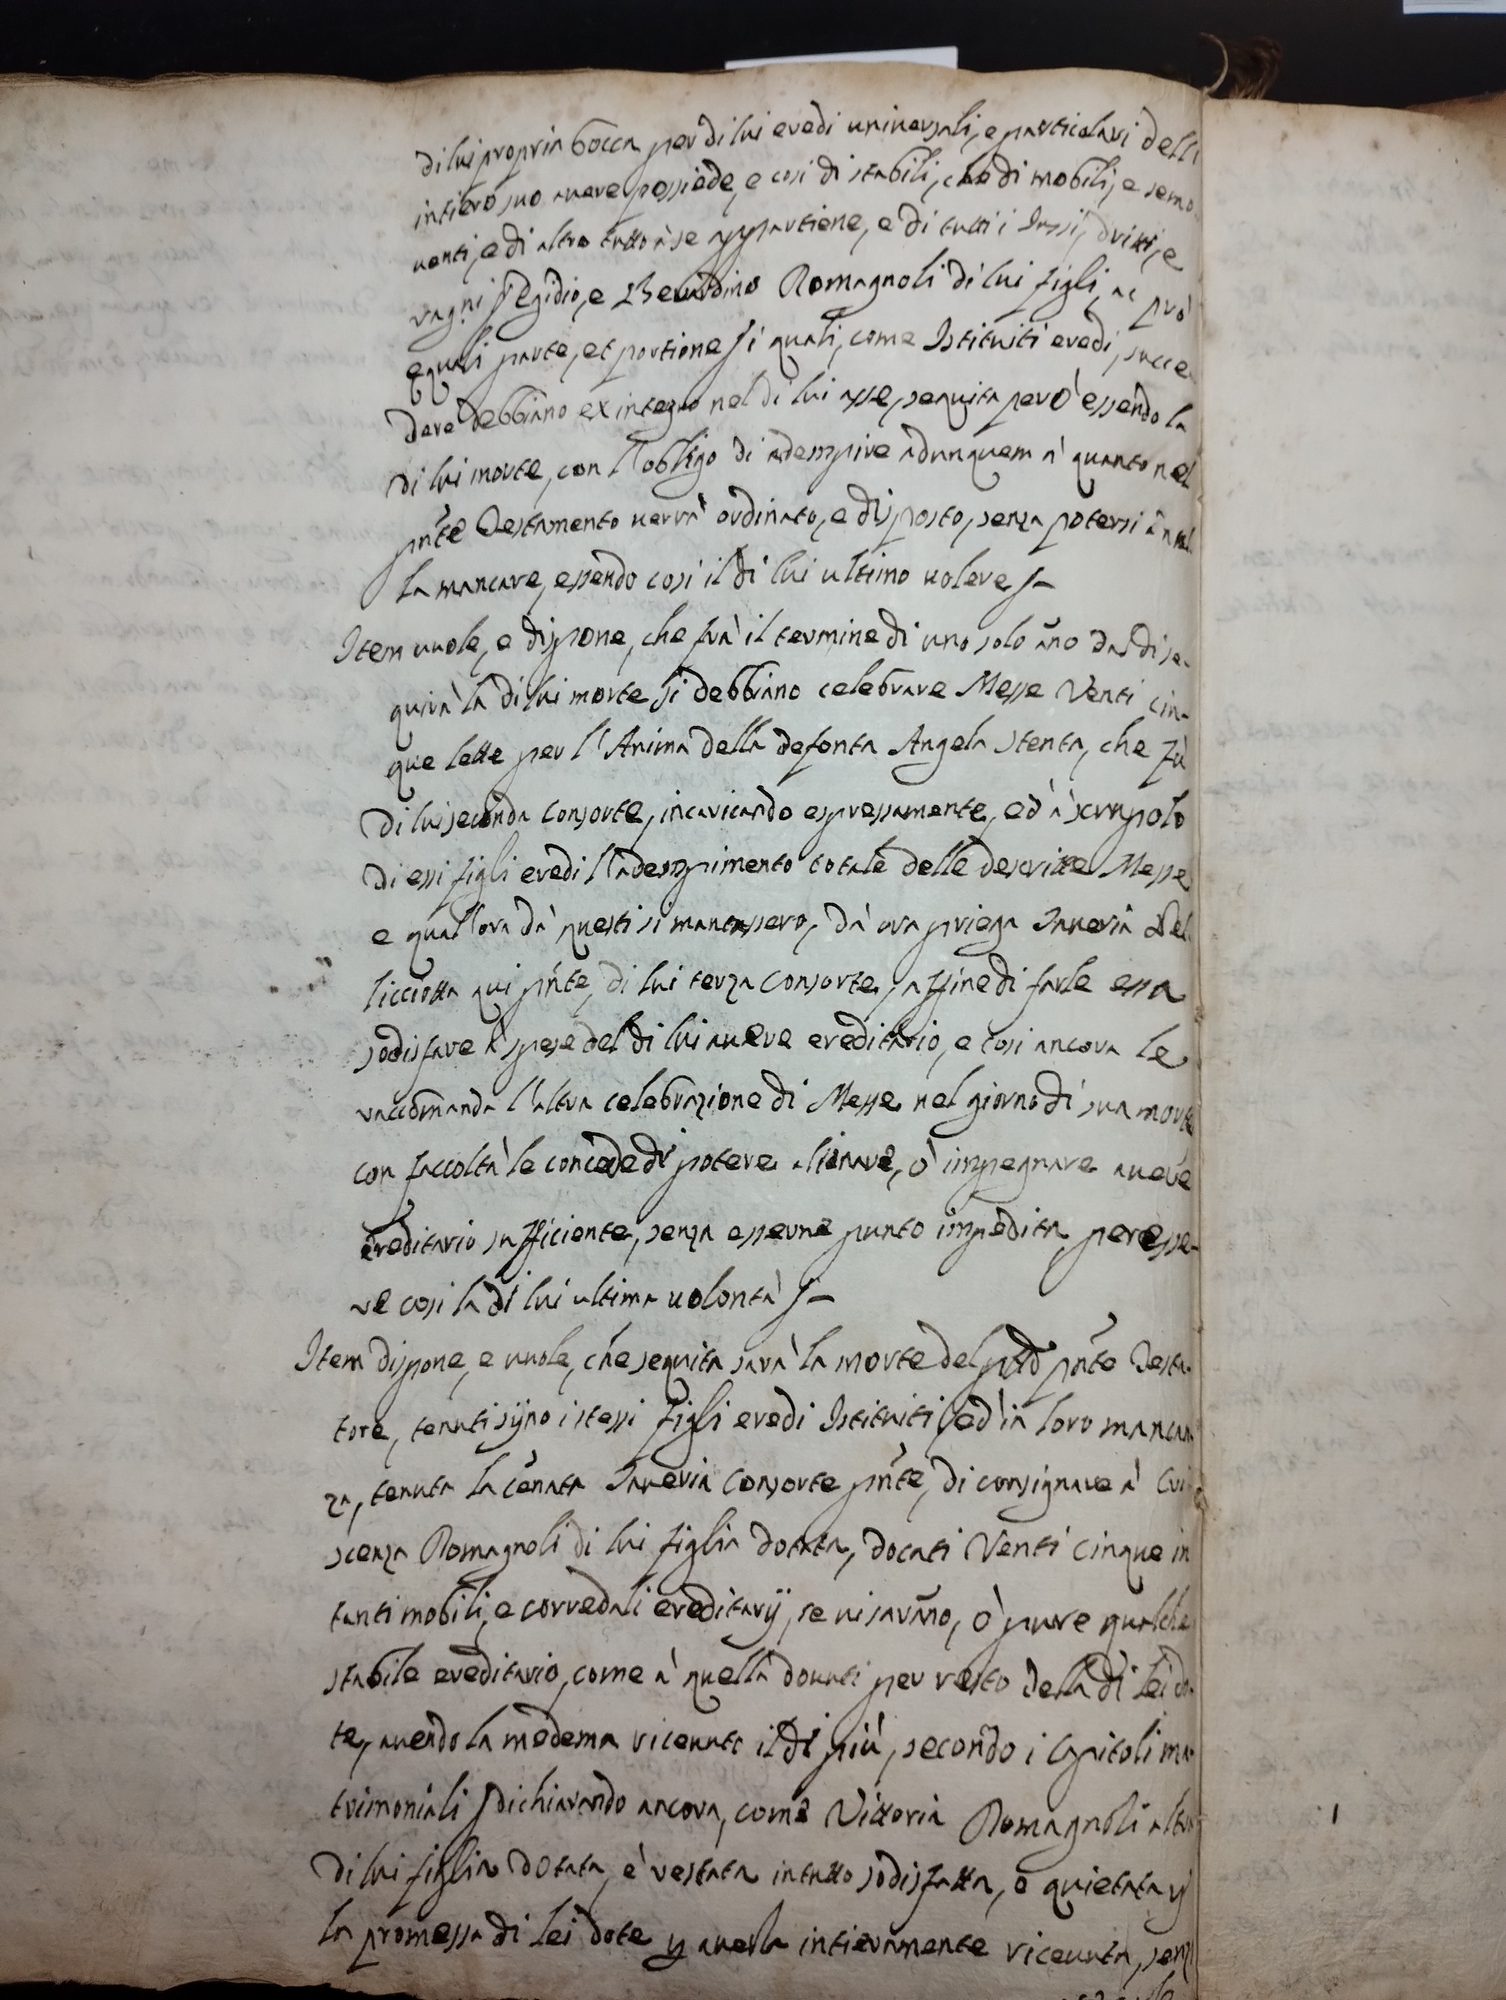 di lui propria bocca per di lui eredi universali, e particolari dell
intiero suo avere possiede, e così di stabili, che di mobili, e semo
venti, e di altro tutto à se appartiene, e di tutti i Jussi, dritti, e
rag.ni Egidio, e Berardino Romagnoli di lui figli, ac prò
equali parte, et portione i quali, come Istituiti eredi, succe
dere debbiano ex integro nel di lui asse, sequita però essendo la
di lui morte, con l'obligo di adempire adunquem à quanto nel
pñte Testamento verrà ordinato, e disposto, senza potersi in nul
la mancare, essendo così il di lui ultimo volere
Item vuole, e dispone, che frà il termine di uno solo año dal di se
quirà la di lui morte si debbiano celebrare Messe Venti cin-
que lette per l'Anima della defonta Angela Stenta, che fù
di lui seconda Consorte, incaricando espressamente, ed à scrupolo
di essi figli eredi l'adempimento totale delle descritte Messe
e qual'ora dà questi si mancassero, dà ora priega Saveria Pel
licciotta qui pñte, di lui terza Consorte, affine di farle essa
sodisfare à spese del di lui avere ereditario, e così ancora le
raccomanda l'altra celebrazione di Messe nel giorno di sua morte
con faccoltà le concede di potere alienare, ò impegnare avere
ereditario sufficiente, senza esserne punto impedita per esse-
re così la di lui ultima volontà
Item dispone, e vuole, che sequita sarà la morte del pñte Testa-
tore, tenuti sijno i stessi figli eredi Istituiti, ed in loro mancan
za, tenuta la cennata Saveria Consorte pñte, di consignare à Cri
scenza Romagnoli di lui figlia dotata, docati Venti cinque in
tanti mobili, e corredali ereditarij, se vi saraño, ò pure qualche
stabile ereditario, come à quella dovuti per resto della di lei do
te, avendo la medema ricevuto il di più, secondo i Capitoli ma
trimoniali dichiarando ancora, come Vittoria Romagnoli altra
di lui figlia dotata, è restata intutto sodisfatta, e quietata p
la promessa di lei dote p averla intieramente ricevuta, senz